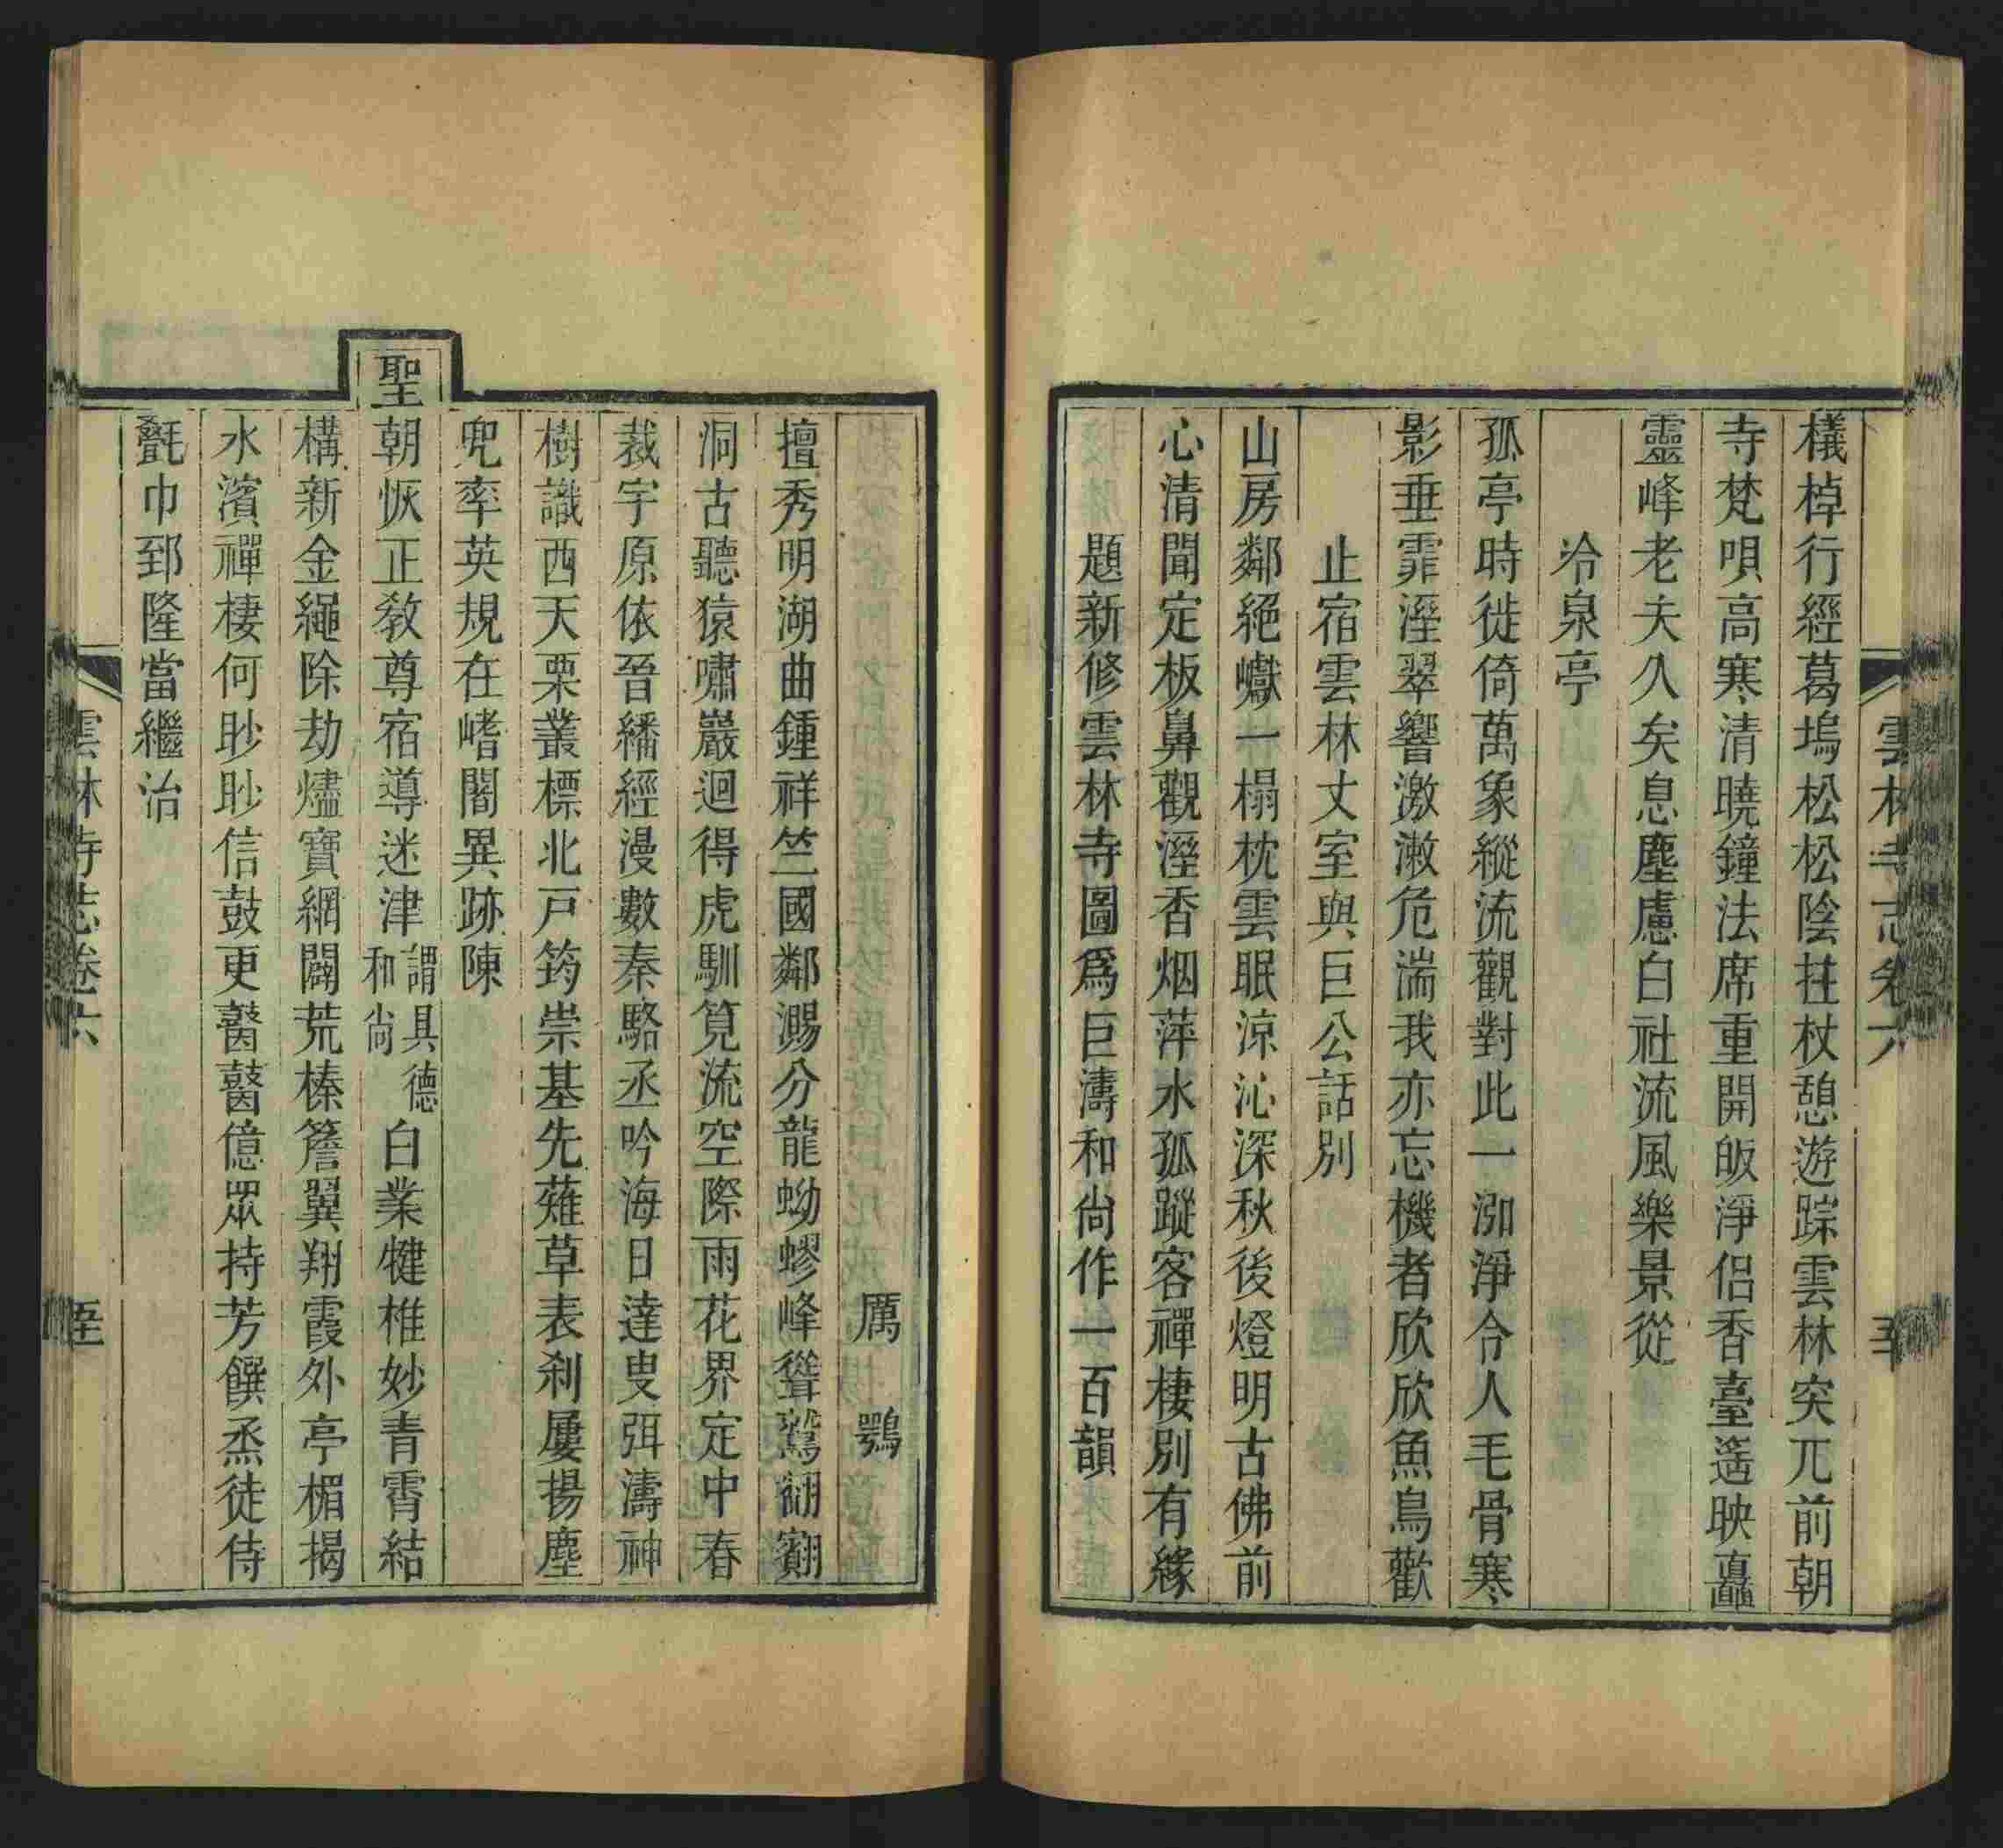 雲林寺志卷六
檥棹行經葛塢松松陰拄杖憩遊踪雲林突兀前朝
寺梵唄高寒清曉鐘法席重開皈淨侶香臺遙映矗
靈峰老夫久矣息塵慮白社流風樂景從
冷泉亭
孤亭時徙倚萬象縱流觀對此一泓淨令人毛骨寒
影垂霏溼翠響激潄危湍我亦忘機者欣欣魚鳥歡
止宿雲林丈室與巨公話別
山房鄰絕巘一榻枕雲眠涼沁深秋後燈明古佛前
心清聞定板鼻觀溼香烟萍水孤蹤客禪棲別有緣
題新修雲林寺圖爲巨濤和尙作一百韻
厲鶚
擅秀明湖曲鍾祥竺國鄰潟分龍蚴蟉峰聳鷲翩翻
洞古聽猿嘯巖迴得虎馴筧流空際雨花界定中春
裁宇原依晉繙經漫數秦駱丞吟海日達叟弭濤神
樹識西天栗叢標北戸筠崇基先薙草表刹屢揚塵
兜率英規在嵴闍異跡陳
聖朝恢正敎尊宿導迷津謂具德和尙白業犍椎妙靑霄結
構新金繩除劫燼寶網闢荒榛簷翼翔霞外亭楣揭
水濱禪棲何眇眇信鼓更鼘鼘億眾持芳饌烝徒侍
氎巾郅隆當繼治
雲林寺志卷六